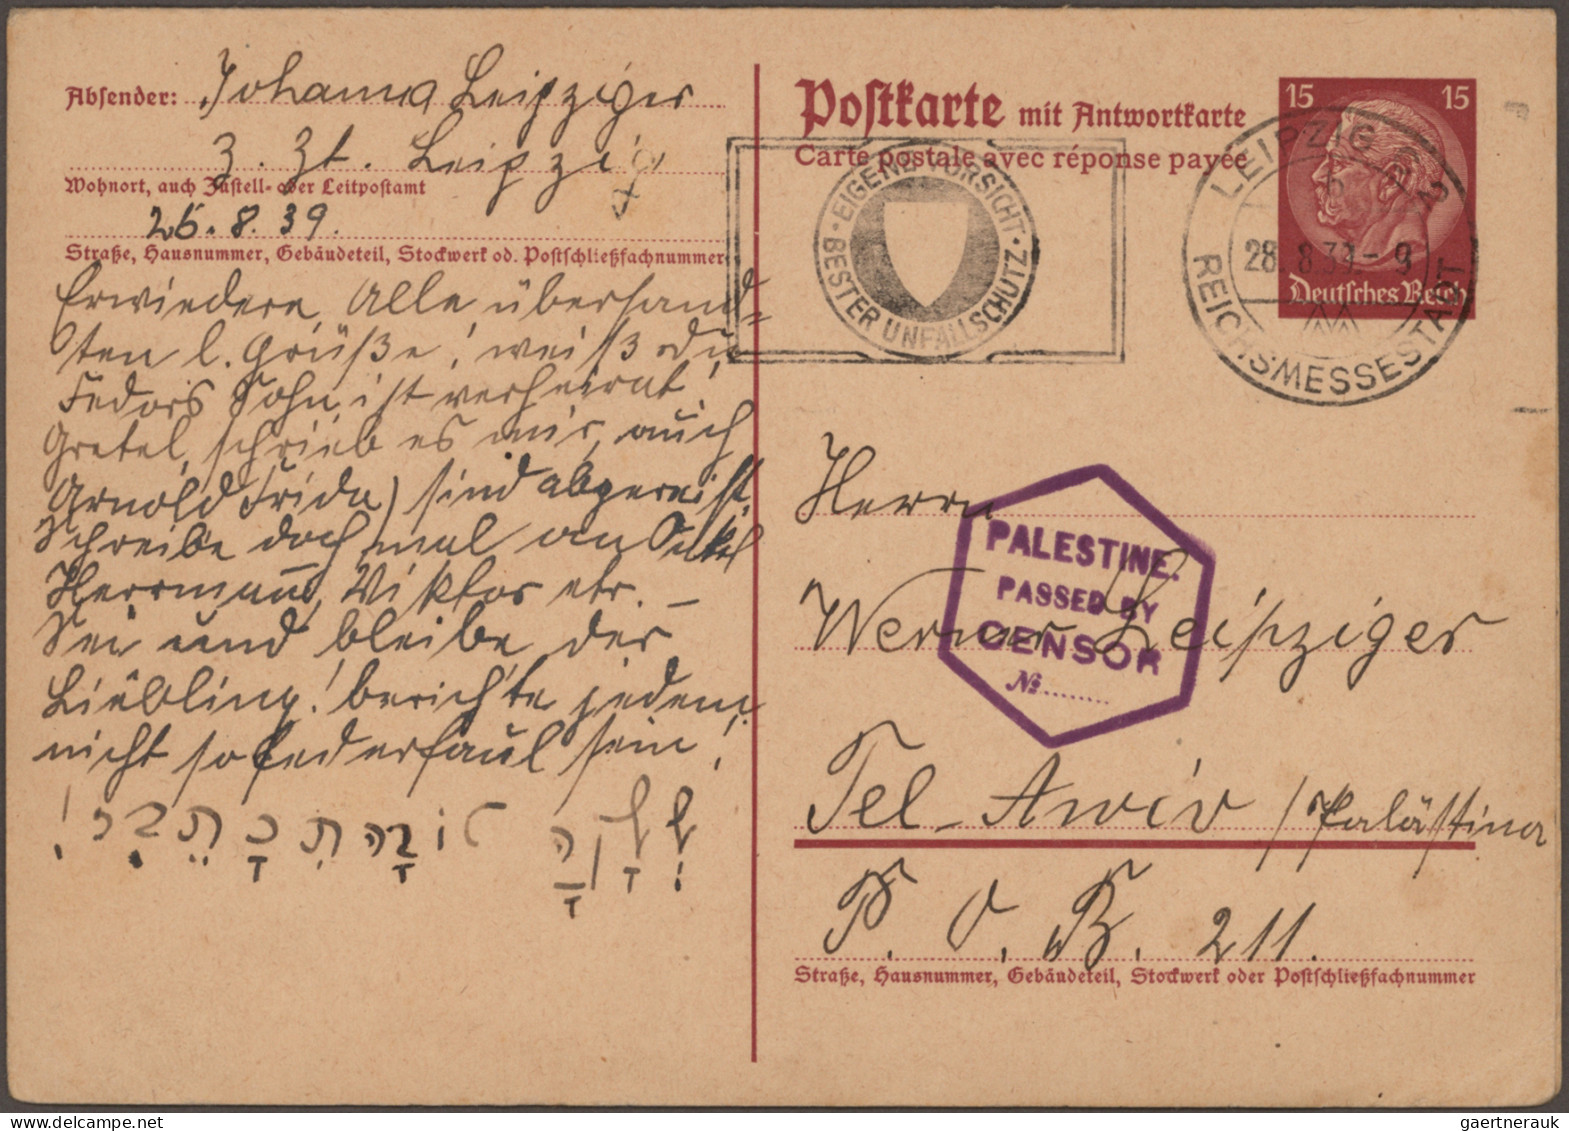 Absender: Johanna Leipziger
z. Zt. Leipzig
Wohnort, auch Zustell- oder Leitpostamt
26.8.39.
Straße, Hausnummer, Gebäudeteil, Stockwerk od. Postschließfachnummer
Erwiedere Alle übersand=
ten l. Grüße! weißt du
Fedors Sohn ist verheirat!
Gretel, schrieb es mir, auch
Arnold Frida) sind abgereist.
Schreibe doch mal an Onkel
Herrmann, Viktor etc. –
Sei und bleibe der
Liebling! berichte jedem
nicht so federfaul sein!
Postkarte mit Antwortkarte
Carte postale avec réponse payée
EIGENE VORSICHT · BESTER UNFALLSCHUTZ ·
LEIPZIG C2
28.8.39.-9
REICHSMESSESTADT
15 15
Deutsches Reich
Herrn
PALESTINE.
PASSED BY
CENSOR
№........
Werner Leipziger
Tel-Awiv /Palästina
P. O. B. 211.
Straße, Hausnummer, Gebäudeteil, Stockwerk oder Postschließfachnummer
gaertnerauk